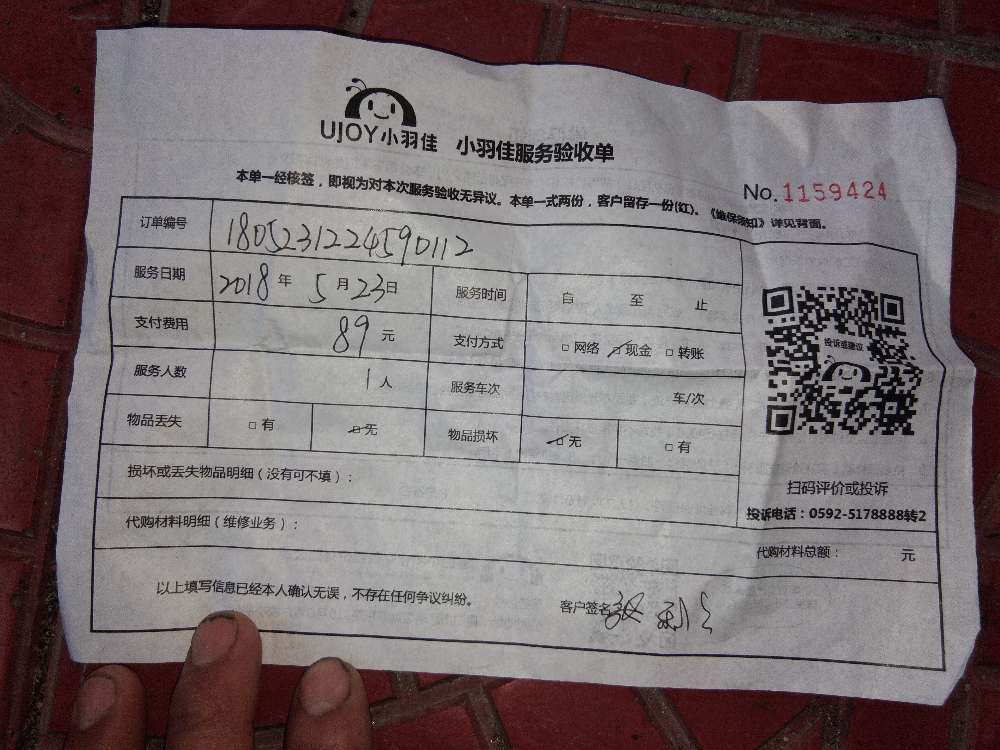 UJOY小羽佳 小羽佳服务验收单
No.1159424
本单一经核签，即视为对本次服务验收无异议。本单一式两份，客户留存一份(红)。《维保须知》详见背面。
订单编号 1805231224590112
服务日期 2018年5月23日 服务时间 自 至 止
支付费用 89元 支付方式 □网络 ☑现金 □转账
服务人数 1人 服务车次 车/次
物品丢失 □有 ☑无 物品损坏 ☑无 □有
投诉或建议
扫码评价或投诉
投诉电话：0592-5178888转2
损坏或丢失物品明细（没有可不填）：
代购材料明细（维修业务）：
代购材料总额： 元
以上填写信息已经本人确认无误，不存在任何争议纠纷。 客户签名